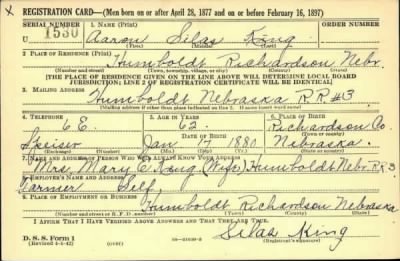 X
REGISTRATION CARD—(Men born on or after April 28, 1877 and on or before February 16, 1897)
SERIAL NUMBER 1. NAME (Print) ORDER NUMBER
U 1530 Aaron Silas King
(First) (Middle) (Last)
2. PLACE OF RESIDENCE (Print)
Humboldt Richardson Nebr.
(Number and street) (Town, township, village, or city) (County) (State)
[THE PLACE OF RESIDENCE GIVEN ON THE LINE ABOVE WILL DETERMINE LOCAL BOARD
JURISDICTION; LINE 2 OF REGISTRATION CERTIFICATE WILL BE IDENTICAL]
3. MAILING ADDRESS
Humboldt Nebraska R.R. #3
[Mailing address if other than place indicated on line 2. If same insert word same]
4. TELEPHONE 5. AGE IN YEARS 6. PLACE OF BIRTH
6 E. 62 Richardson Co.
DATE OF BIRTH (Town or county)
Speiser Jan 17 1880 Nebraska.
(Exchange) (Number) (Mo.) (Day) (Yr.) (State or country)
7. NAME AND ADDRESS OF PERSON WHO WILL ALWAYS KNOW YOUR ADDRESS
Mrs. Mary E. King (Wife) Humboldt Nebr. R.R. 3
8. EMPLOYER'S NAME AND ADDRESS
Farmer Self
9. PLACE OF EMPLOYMENT OR BUSINESS
Humboldt Richardson Nebraska
(Number and street or R. F. D. number) (Town) (County) (State)
I AFFIRM THAT I HAVE VERIFIED ABOVE ANSWERS AND THAT THEY ARE TRUE.
D. S. S. Form 1 Silas King
(Revised 4-1-42) (over) (Registrant's signature)